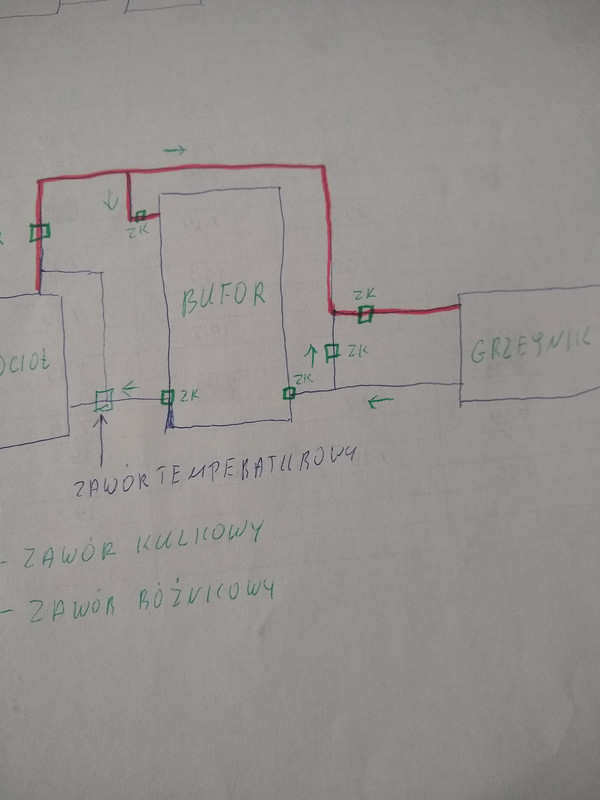 ZK
ZK
BUFOR
ZK
GRZEJNIK
ZK
ZK
ZK
ZAWÓR TEMPERATUROWY
- ZAWÓR KULKOWY
- ZAWÓR RÓŻNICOWY